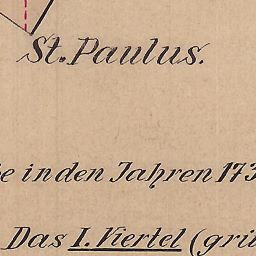 St. Paulus.
e in den Jahren 173
Das I. Viertel (grü